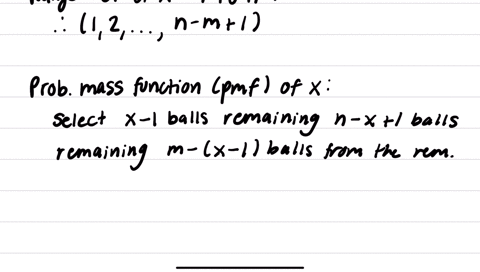 ∴ (1, 2, ..., n-m+1)
Prob. mass function (pmf) of x:
select x-1 balls remaining n-x+1 balls
remaining m-(x-1) balls from the rem.